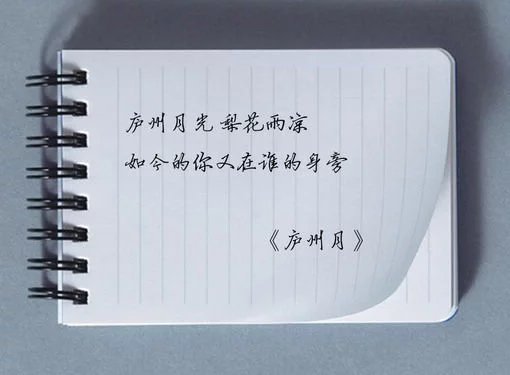 庐州月光 梨花雨凉
如今的你又在谁的身旁
《庐州月》